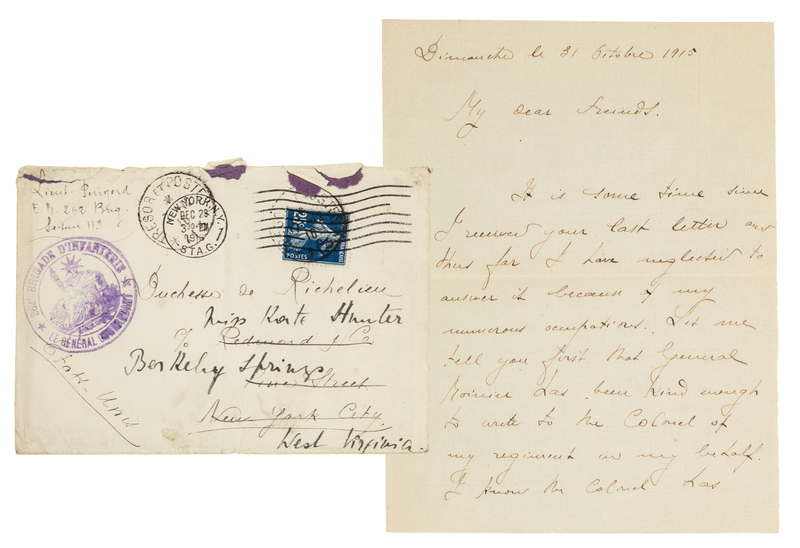 Dimanche le 31 Octobre 1915
My dear Friends.
It is some time since
I received your last letter and
thus far I have neglected to
answer it because of my
numerous occupations. Let me
tell you first that General
has been kind enough
to write to the Colonel of
my regiment in my behalf.
I know the Colonel has
Lieut. Perigord
E M 262 Brig.
Secteur 113
TRESOR ET POSTES
NEW YORK, N.Y.
DEC 29
330 PM
191
STA G.
POSTES
262E BRIGADE D'INFANTERIE
LE GENERAL
Etats-Unis
Duchesse de Richelieu
Miss Kate Hunter
c/o Redmond & Co.
Berkeley Springs
Pine Street
New York City
West Virginia.